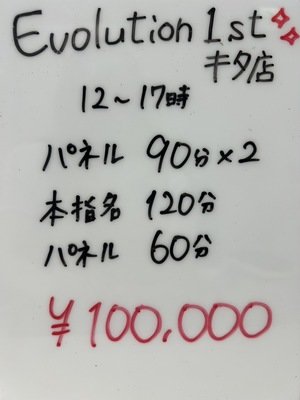 Evolution 1st
キタ店
12～17時
パネル 90分×2
本指名 120分
パネル 60分
¥100,000